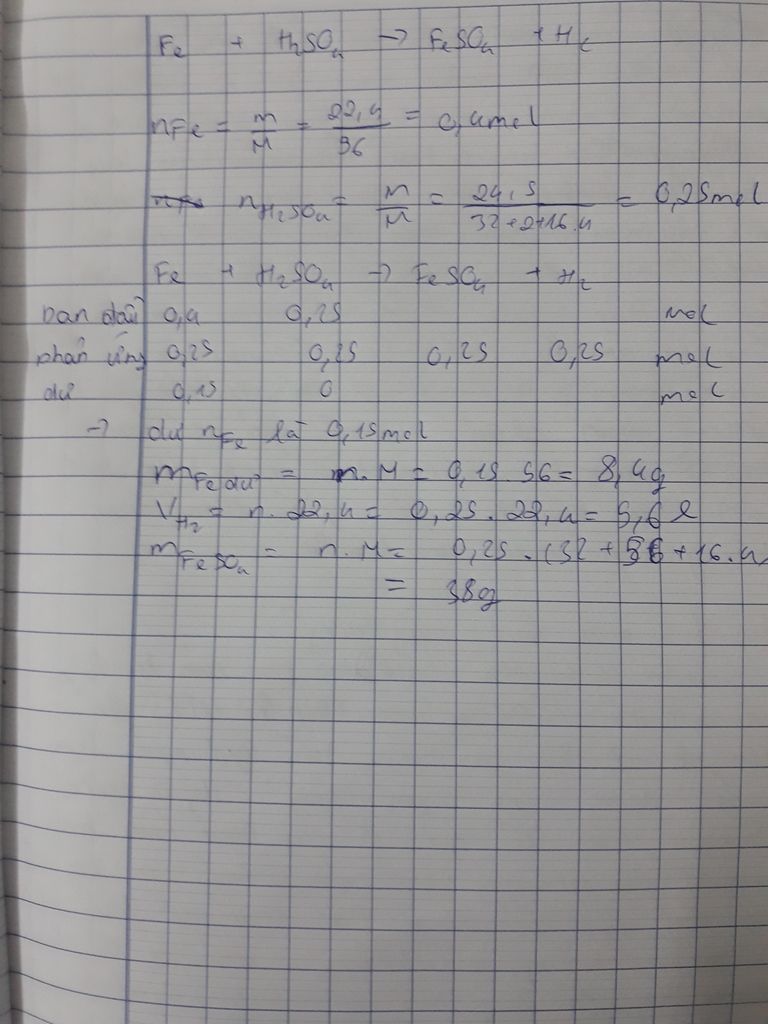 Fe + H2SO4 → FeSO4 + H2
nFe = m/M = 22,4/56 = 0,4mol
nH2SO4 = m/M = 24,5/32+2+16.4 = 0,25mol
Fe + H2SO4 → FeSO4 + H2
ban đầu 0,4 0,25 mol
phản ứng 0,25 0,25 0,25 0,25 mol
dư 0,15 0 mol
→ dư nFe là 0,15mol
mFe dư = n.M = 0,15.56 = 8,4g
VH2 = n.22,4 = 0,25.22,4 = 5,6l
mFeSO4 = n.M = 0,25.(32+56+16.4
= 38g